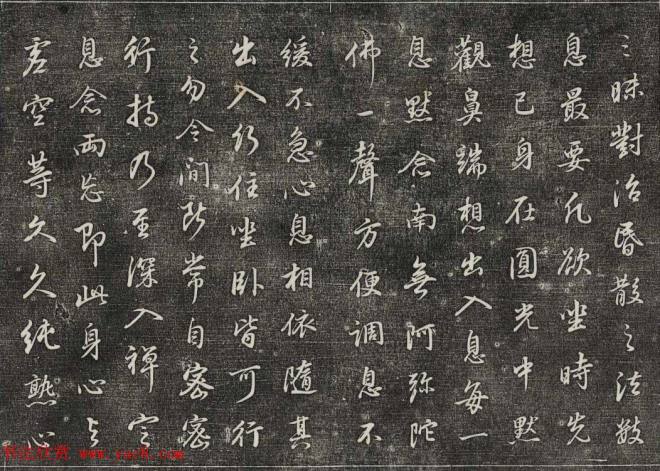 三昧對治昏散之法數
息最要凡欲坐時先
想己身在圓光中默
觀鼻端想出入息每一
息默念南無阿弥陀
佛一聲方便調息不
緩不急心息相依隨其
出入行住坐卧皆可行
之勿令间断常自密密
行持乃至深入禅定
息念两忘即此身心与
虚空等久久纯熟心
书法欣赏 www.yac8.com